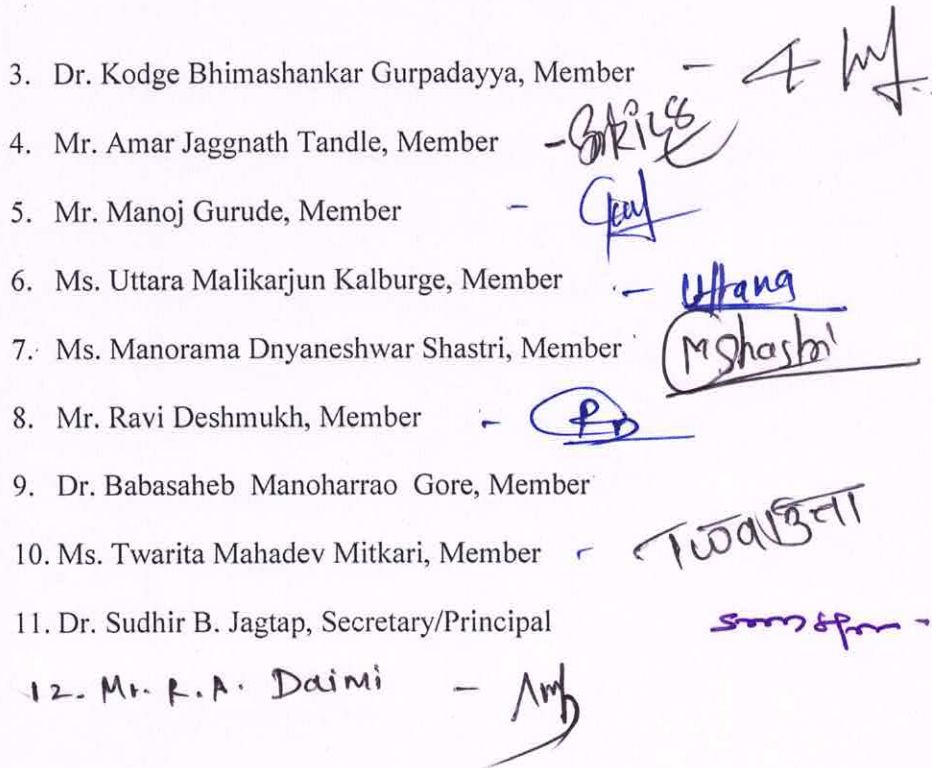 3. Dr. Kodge Bhimashankar Gurpadayya, Member -
4. Mr. Amar Jaggnath Tandle, Member -
5. Mr. Manoj Gurude, Member -
6. Ms. Uttara Malikarjun Kalburge, Member -
7. Ms. Manorama Dnyaneshwar Shastri, Member MShastri
8. Mr. Ravi Deshmukh, Member -
9. Dr. Babasaheb Manoharrao Gore, Member
10. Ms. Twarita Mahadev Mitkari, Member -
11. Dr. Sudhir B. Jagtap, Secretary/Principal
12. Mr. R.A. Daimi -